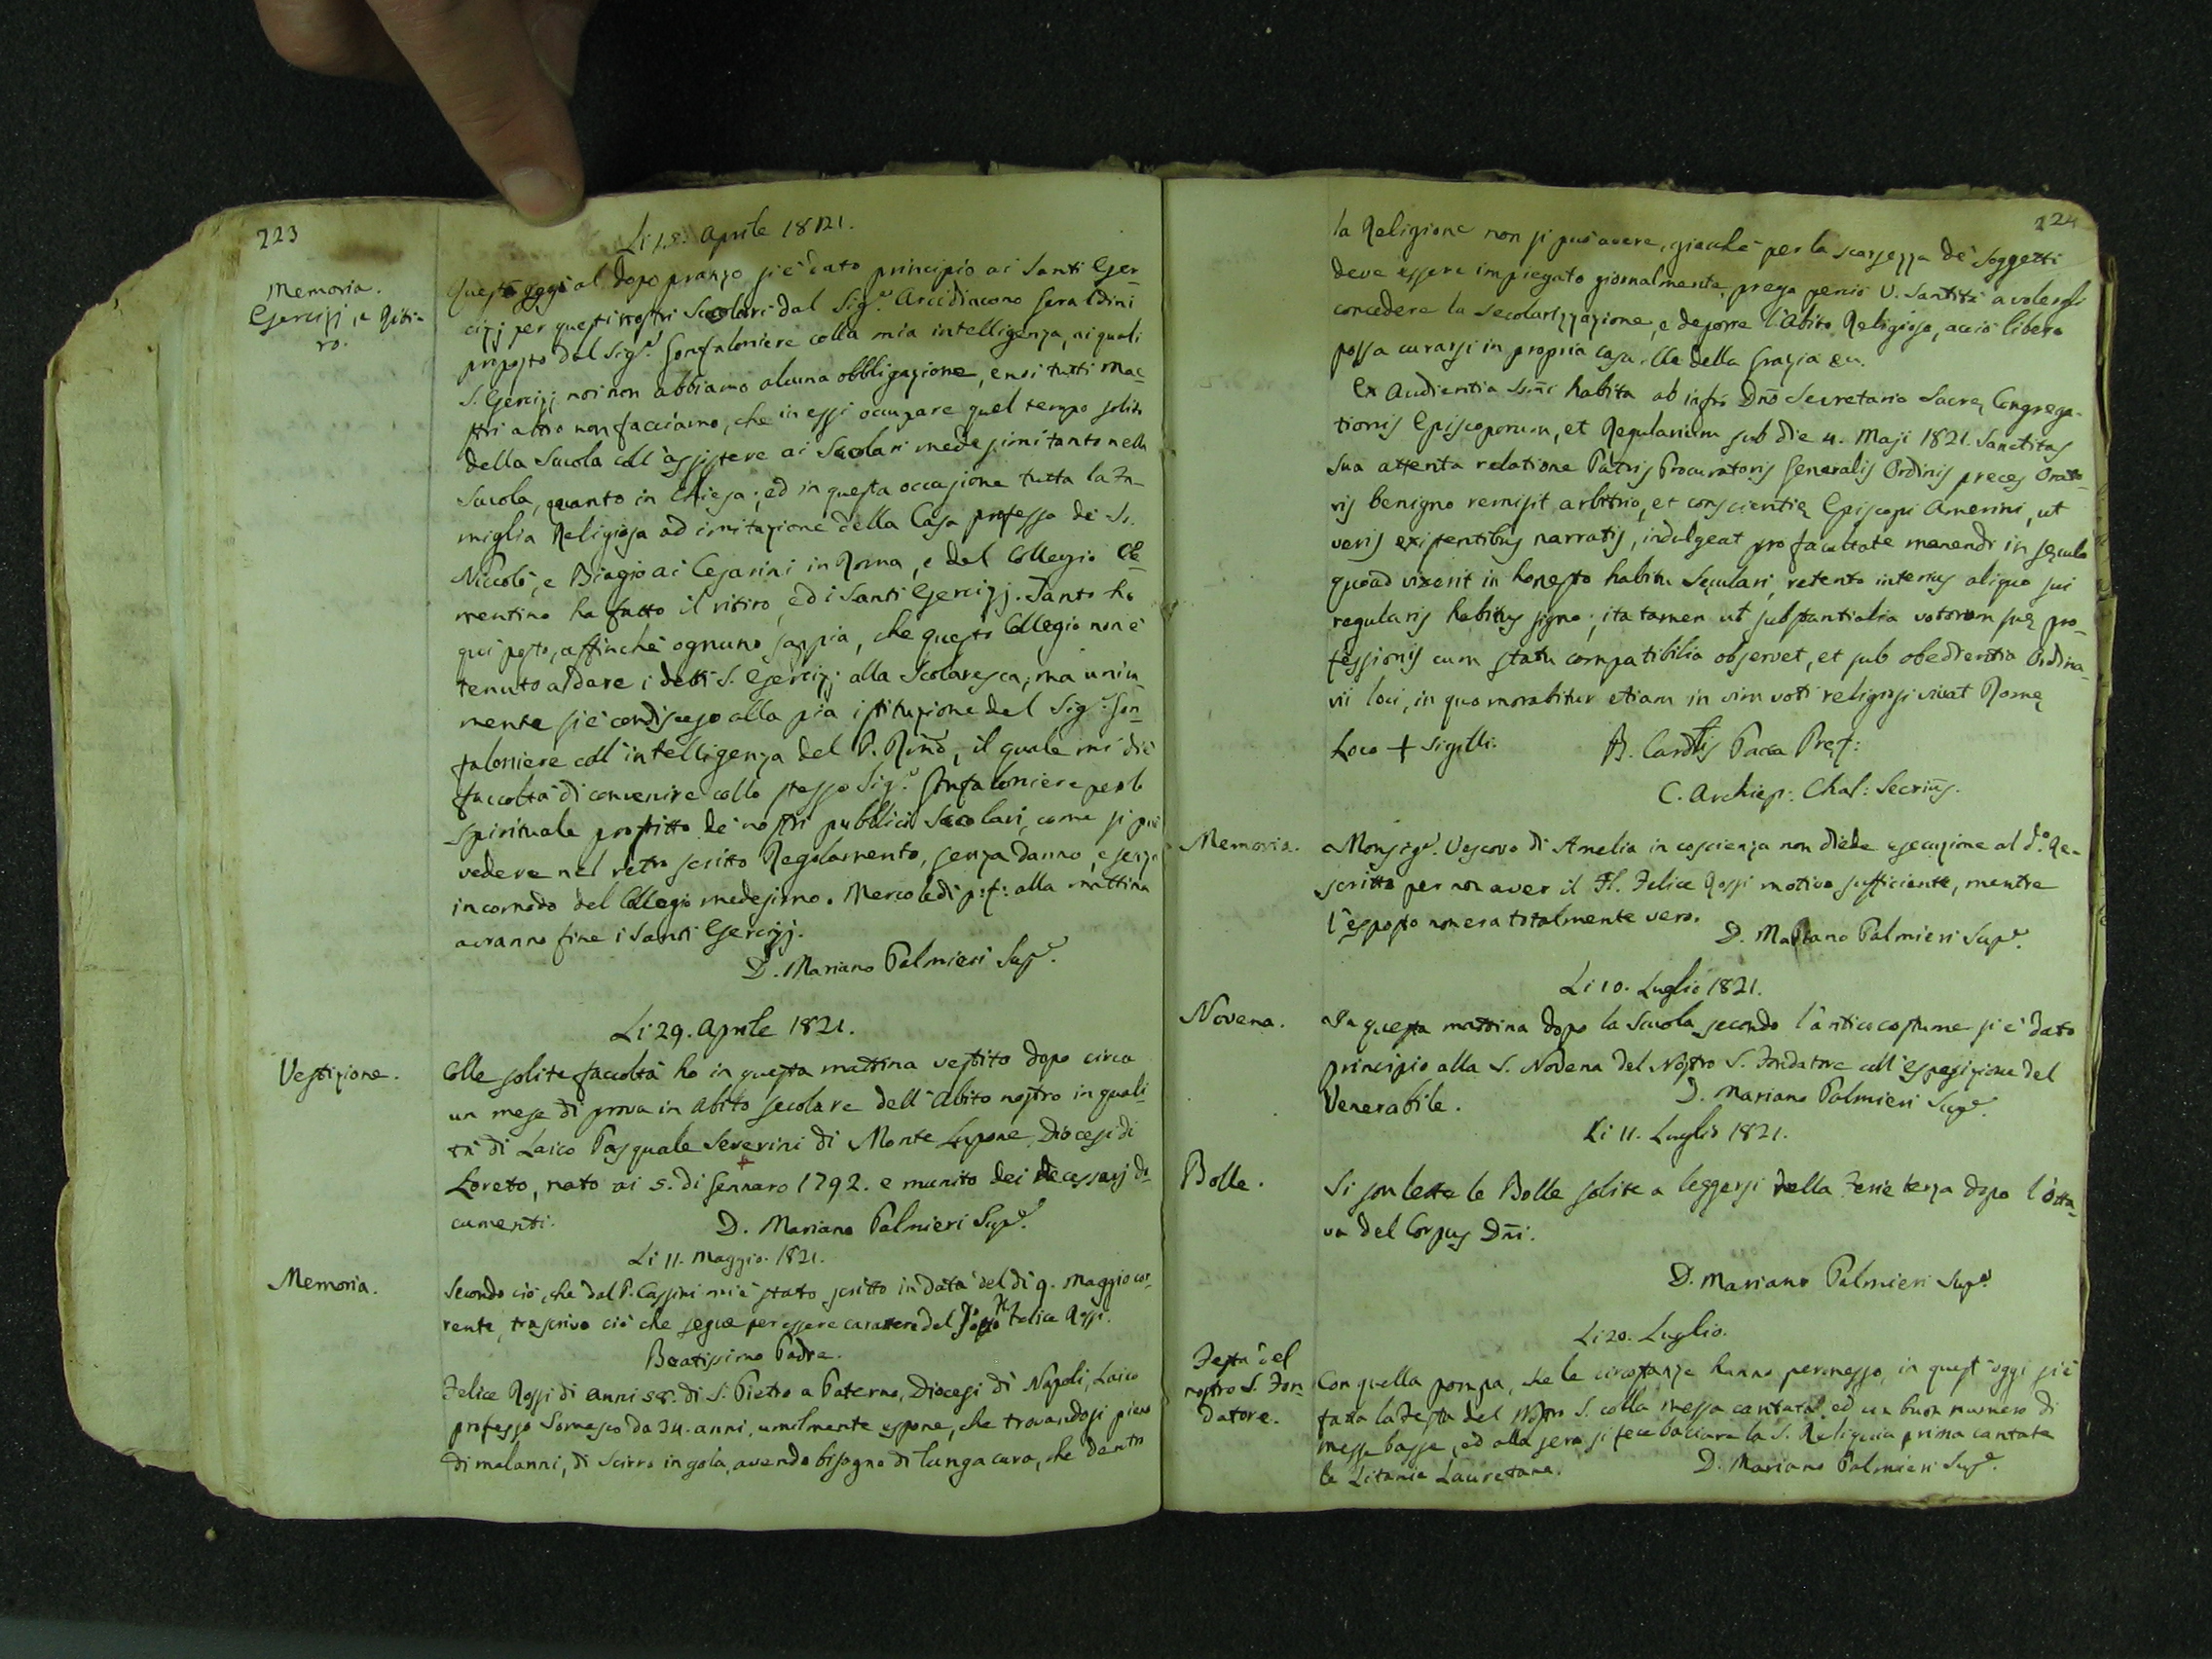 223
Li 18. Aprile 1821.
Memoria.
Esercizj, e Riti-
ro.
Quest'oggi al dopo pranzo si è dato principio ai Santi Eser-
cizj per questi nostri Scolari dal Sig.e Arcidiacono Geraldini
proposto dal Sig.e Gonfaloniere colla mia intelligenza, ai quali
S. Esercizj noi non abbiamo alcuna obbligazione, e noi tutti Mae-
stri altro non facciamo, che in essi occupare quel tempo solito
della Scuola coll'assistere ai Scolari medesimi tanto nella
Scuola, quanto in Chiesa; ed in questa occasione tutta la Fa-
miglia Religiosa ad imitazione della Casa professa de' Ss.
Niccolò, e Biagio ai Cesarini in Roma, e del Collegio Cle-
mentino ha fatto il ritiro, ed i Santi Esercizj. Tanto ho
qui posto, affinchè ognuno sappia, che questo Collegio non è
tenuto a dare i detti S. Esercizj alla Scolaresca; ma unica-
mente si è condisceso alla pia istituzione del Sig.e Gon-
faloniere coll'intelligenza del P. Rm̃o, il quale mi diè
facoltà di convenire collo stesso Sig.e Gonfaloniere per lo
spirituale profitto de' nostri pubblici Scolari, come si può
vedere nel retro scritto Regolamento, senza danno, e senza
incomodo del Collegio medesimo. Mercoledì p: f: alla mattina
avranno fine i Santi Esercizj.
D. Mariano Palmieri Sup.e
Li 29. Aprile 1821.
Vestizione.
Colle solite facoltà ho in questa mattina vestito dopo circa
un mese di prova in abito secolare dell'Abito nostro in quali-
tà di Laico Pasquale Severini di Monte Lupone Diocesi di
Loreto, nato ai 5. di Gennaro 1792. e munito dei necessarj do-
cumenti.
D. Mariano Palmieri Sup.e
Li 11. Maggio. 1821.
Memoria.
Secondo ciò, che dal P. Cassini mi è stato scritto in data del dì 9. Maggio cor-
rente, trascrivo ciò che segue per essere carattere del Felice Rossi.
Beatissimo Padre.
Felice Rossi di anni 58. di S. Pietro a Paterno, Diocesi di Napoli, Laico
professo Somasco da 34. anni, umilmente espone, che trovandosi pieno
di malanni, di Scirro in gola, avendo bisogno di lunga cura, che dentro
224
la Religione non si può avere, giacchè per la scarsezza de' Soggetti
deve essere impiegato giornalmente, prega perciò V. Santità a volergli
concedere la Secolarizzazione, e deporre l'Abito Religioso, acciò libero
possa curarsi in propria casa. Che della Grazia ec.
Ex Audientia Ssm̃i habita ab infro Dño Secretario Sacrę Congrega-
tionis Episcoporum, et Regularium sub die 4. Maji 1821. Sanctitas
Sua attenta relatione Patris Procuratoris Generalis Ordinis preces Orato-
ris benigno remisit arbitrio, et conscientię Episcopi Amerini, ut
veris existentibus narratis, indulgeat pro facultate manendi in sęculo
quoad vixerit in honesto habitu Sęculari, retento interius aliquo sui
regularis habitus signo; ita tamen ut substantialia votorum suę pro-
fessionis cum statu compatibilia observet, et sub obedientia Ordina-
rii loci, in quo morabitur etiam in vim voti religiosi vivat Romę
Loco + Sigilli.
B. Cardlis Pacca Pręf:
C. Archiep: Chal: Secrius.
Memoria.
Monsig.e Vescovo di Amelia in coscienza non diede esecuzione al d.o Re-
scritto per non aver il Fl. Felice Rossi motivo sufficiente, mentre
l'esposto non era totalmente vero.
D. Mariano Palmieri Sup.e
Li 10. Luglio 1821.
Novena.
In questa mattina dopo la Scuola secondo l'antico costume si è dato
principio alla S. Novena del Nostro S. Fondatore coll'esposizione del
Venerabile.
D. Mariano Palmieri Sup.e
Li 11. Luglio 1821.
Bolle.
Si son lette le Bolle solite a leggersi nella Feria terza dopo l'otta-
va del Corpus Dñi.
D. Mariano Palmieri Sup.e
Li 20. Luglio.
Festa del
nostro S. Fon-
datore.
Con quella pompa, che le circostanze hanno permesso, in quest'oggi si è
fatta la Festa del Nostro S. colla messa cantata, ed un buon numero di
messe basse, ed alla sera si fece baciare la S. Reliquia prima cantate
le Litanie Lauretane.
D. Mariano Palmieri Sup.e